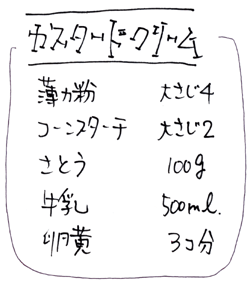 カスタードクリーム
薄力粉 大さじ4
コーンスターチ 大さじ2
さとう 100g
牛乳 500ml.
卵黄 3コ分